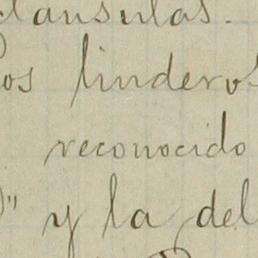 clausulas.
los linderos
reconocido
)" y la del